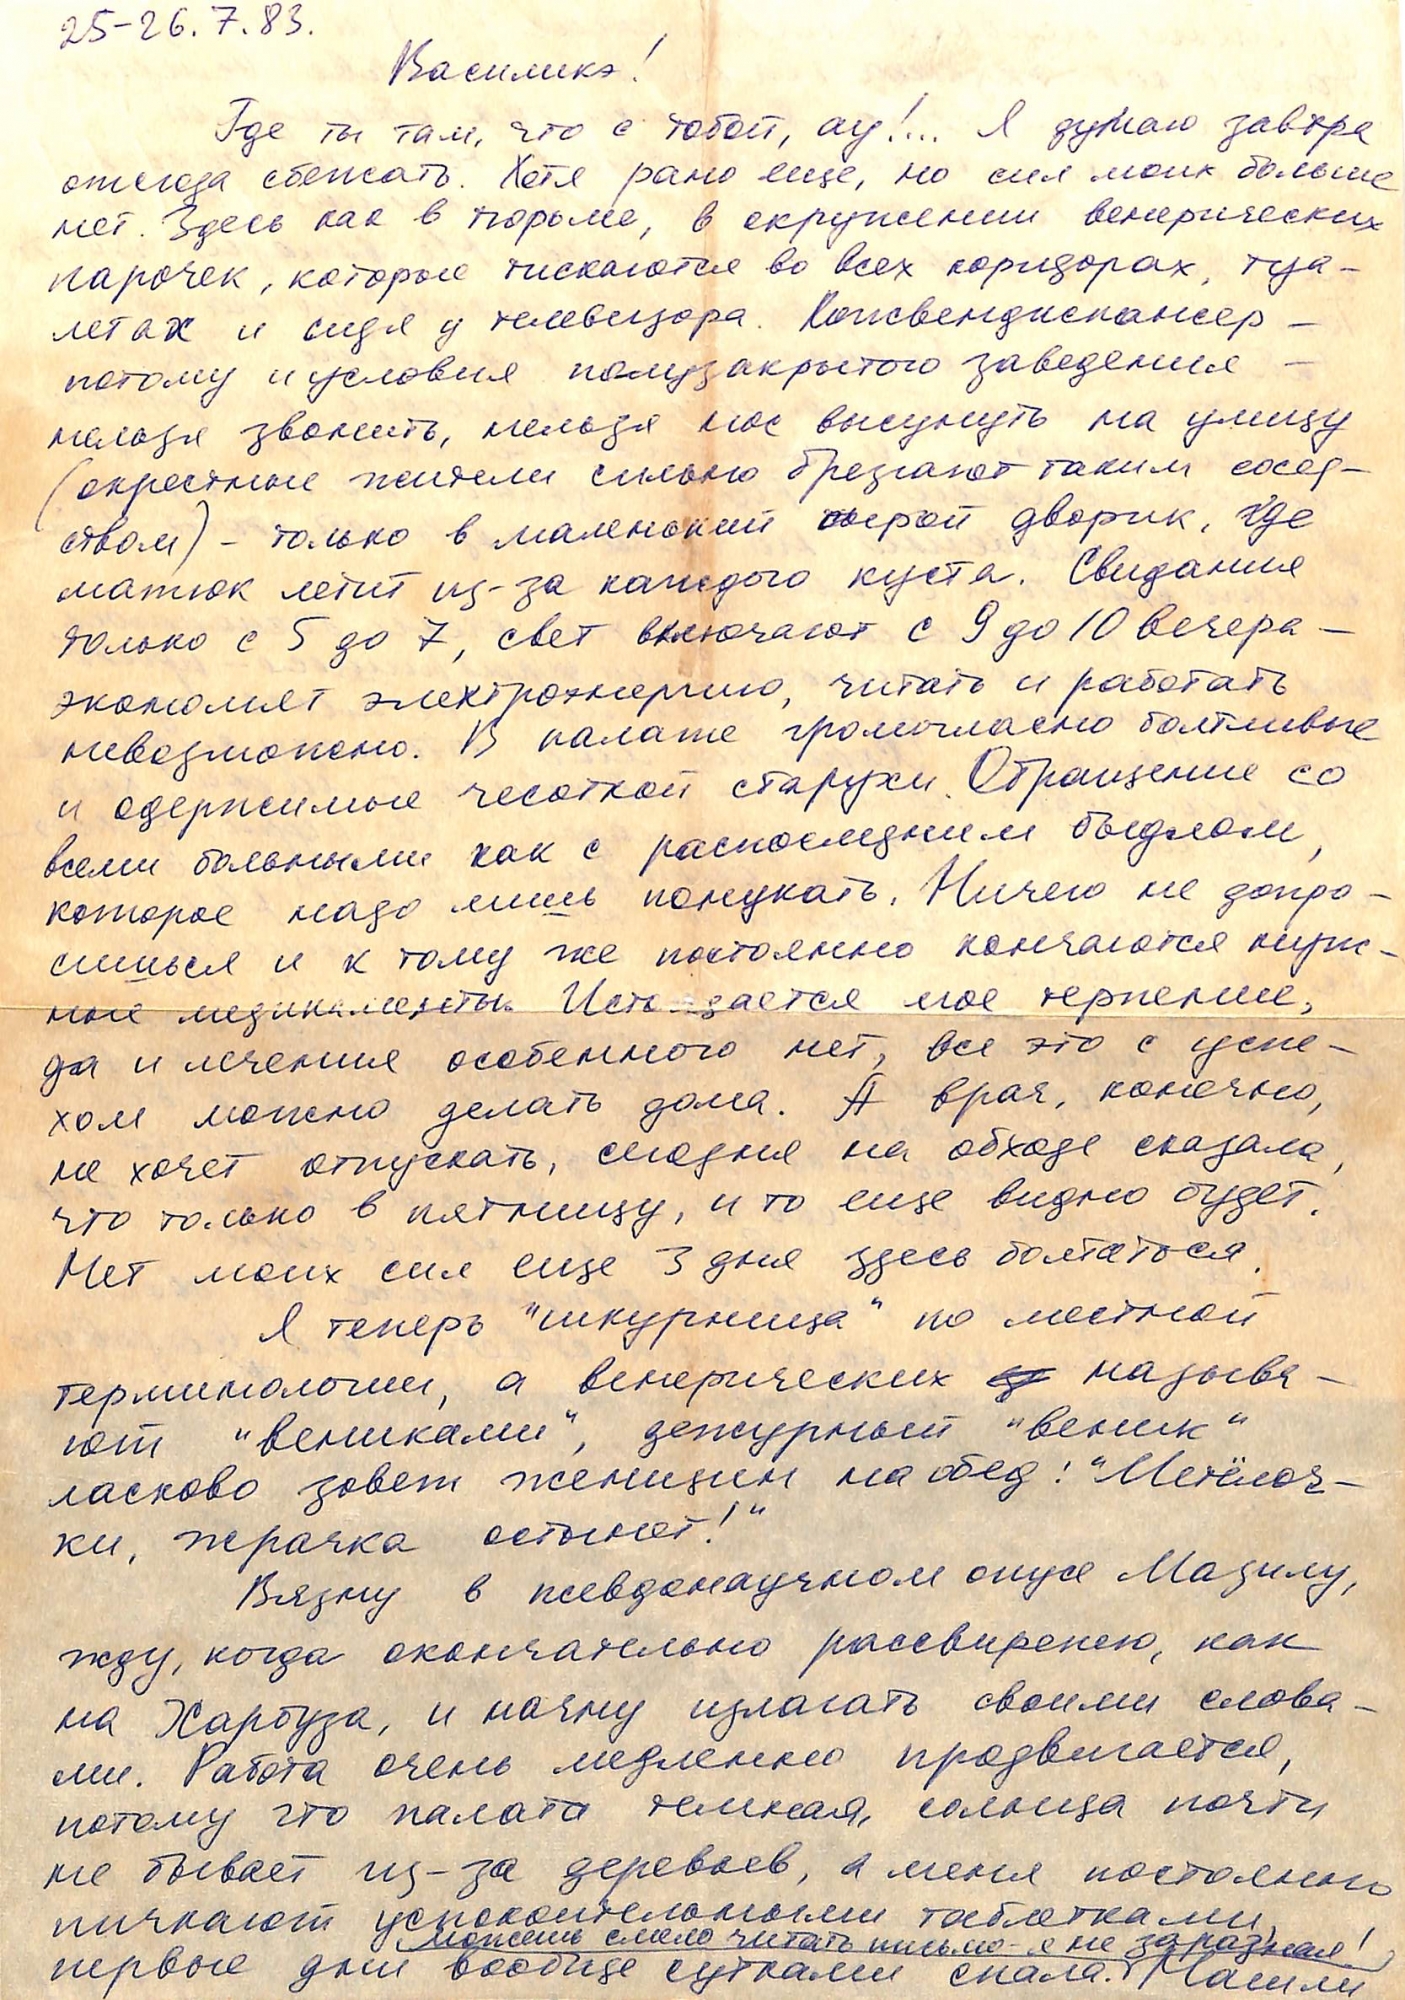 25-26.7.83.
Василикэ!
Где ты там, что с тобой, ау!... Я думаю завтра
отсюда сбежать. Хотя рано еще, но сил моих больше
нет. Здесь как в тюрьме, в окружении венерических
парочек, которые тискаются во всех коридорах, туа-
летах и сидя у телевизора. Кожвендиспансер –
потому и условия полузакрытого заведения –
нельзя звонить, нельзя нос высунуть на улицу
(окрестные жители сильно брезгают таким сосед-
ством) – только в маленький сырой дворик, где
матюк летит из-за каждого куста. Свидания
только с 5 до 7, свет включают с 9 до 10 вечера –
экономят электроэнергию, читать и работать
невозможно. В палате громогласно болтливые
и одержимые чесоткой старухи. Обращение со
всеми больными как с распоследним быдлом,
которое надо лишь понукать. Ничего не допро-
сишься и к тому же постоянно кончаются нуж-
ные медикаменты. Истощается мое терпение,
да и лечения особенного нет, все это с успе-
хом можно делать дома. А врач, конечно,
не хочет отпускать, сегодня на обходе сказала,
что только в пятницу, и то еще видно будет.
Нет моих сил еще 3 дня здесь болтаться.
Я теперь "шкурница" по местной
терминологии, а венерических называ-
ют "вениками", дежурный "веник"
ласково зовет женщин на обед: "Метёлоч-
ки, жрачка остынет!"
Вязну в псевдонаучном опусе Мазилу,
жду, когда окончательно рассвирепею, как
на Харбуза, и начну излагать своими слова-
ми. Работа очень медленно продвигается,
потому что палата темная, солнца почти
не бывает из-за деревьев, а меня постоянно
пичкают успокоительными таблетками,
можешь смело читать письмо – я не заразная!
первые дни вообще сутками спала. Нашли